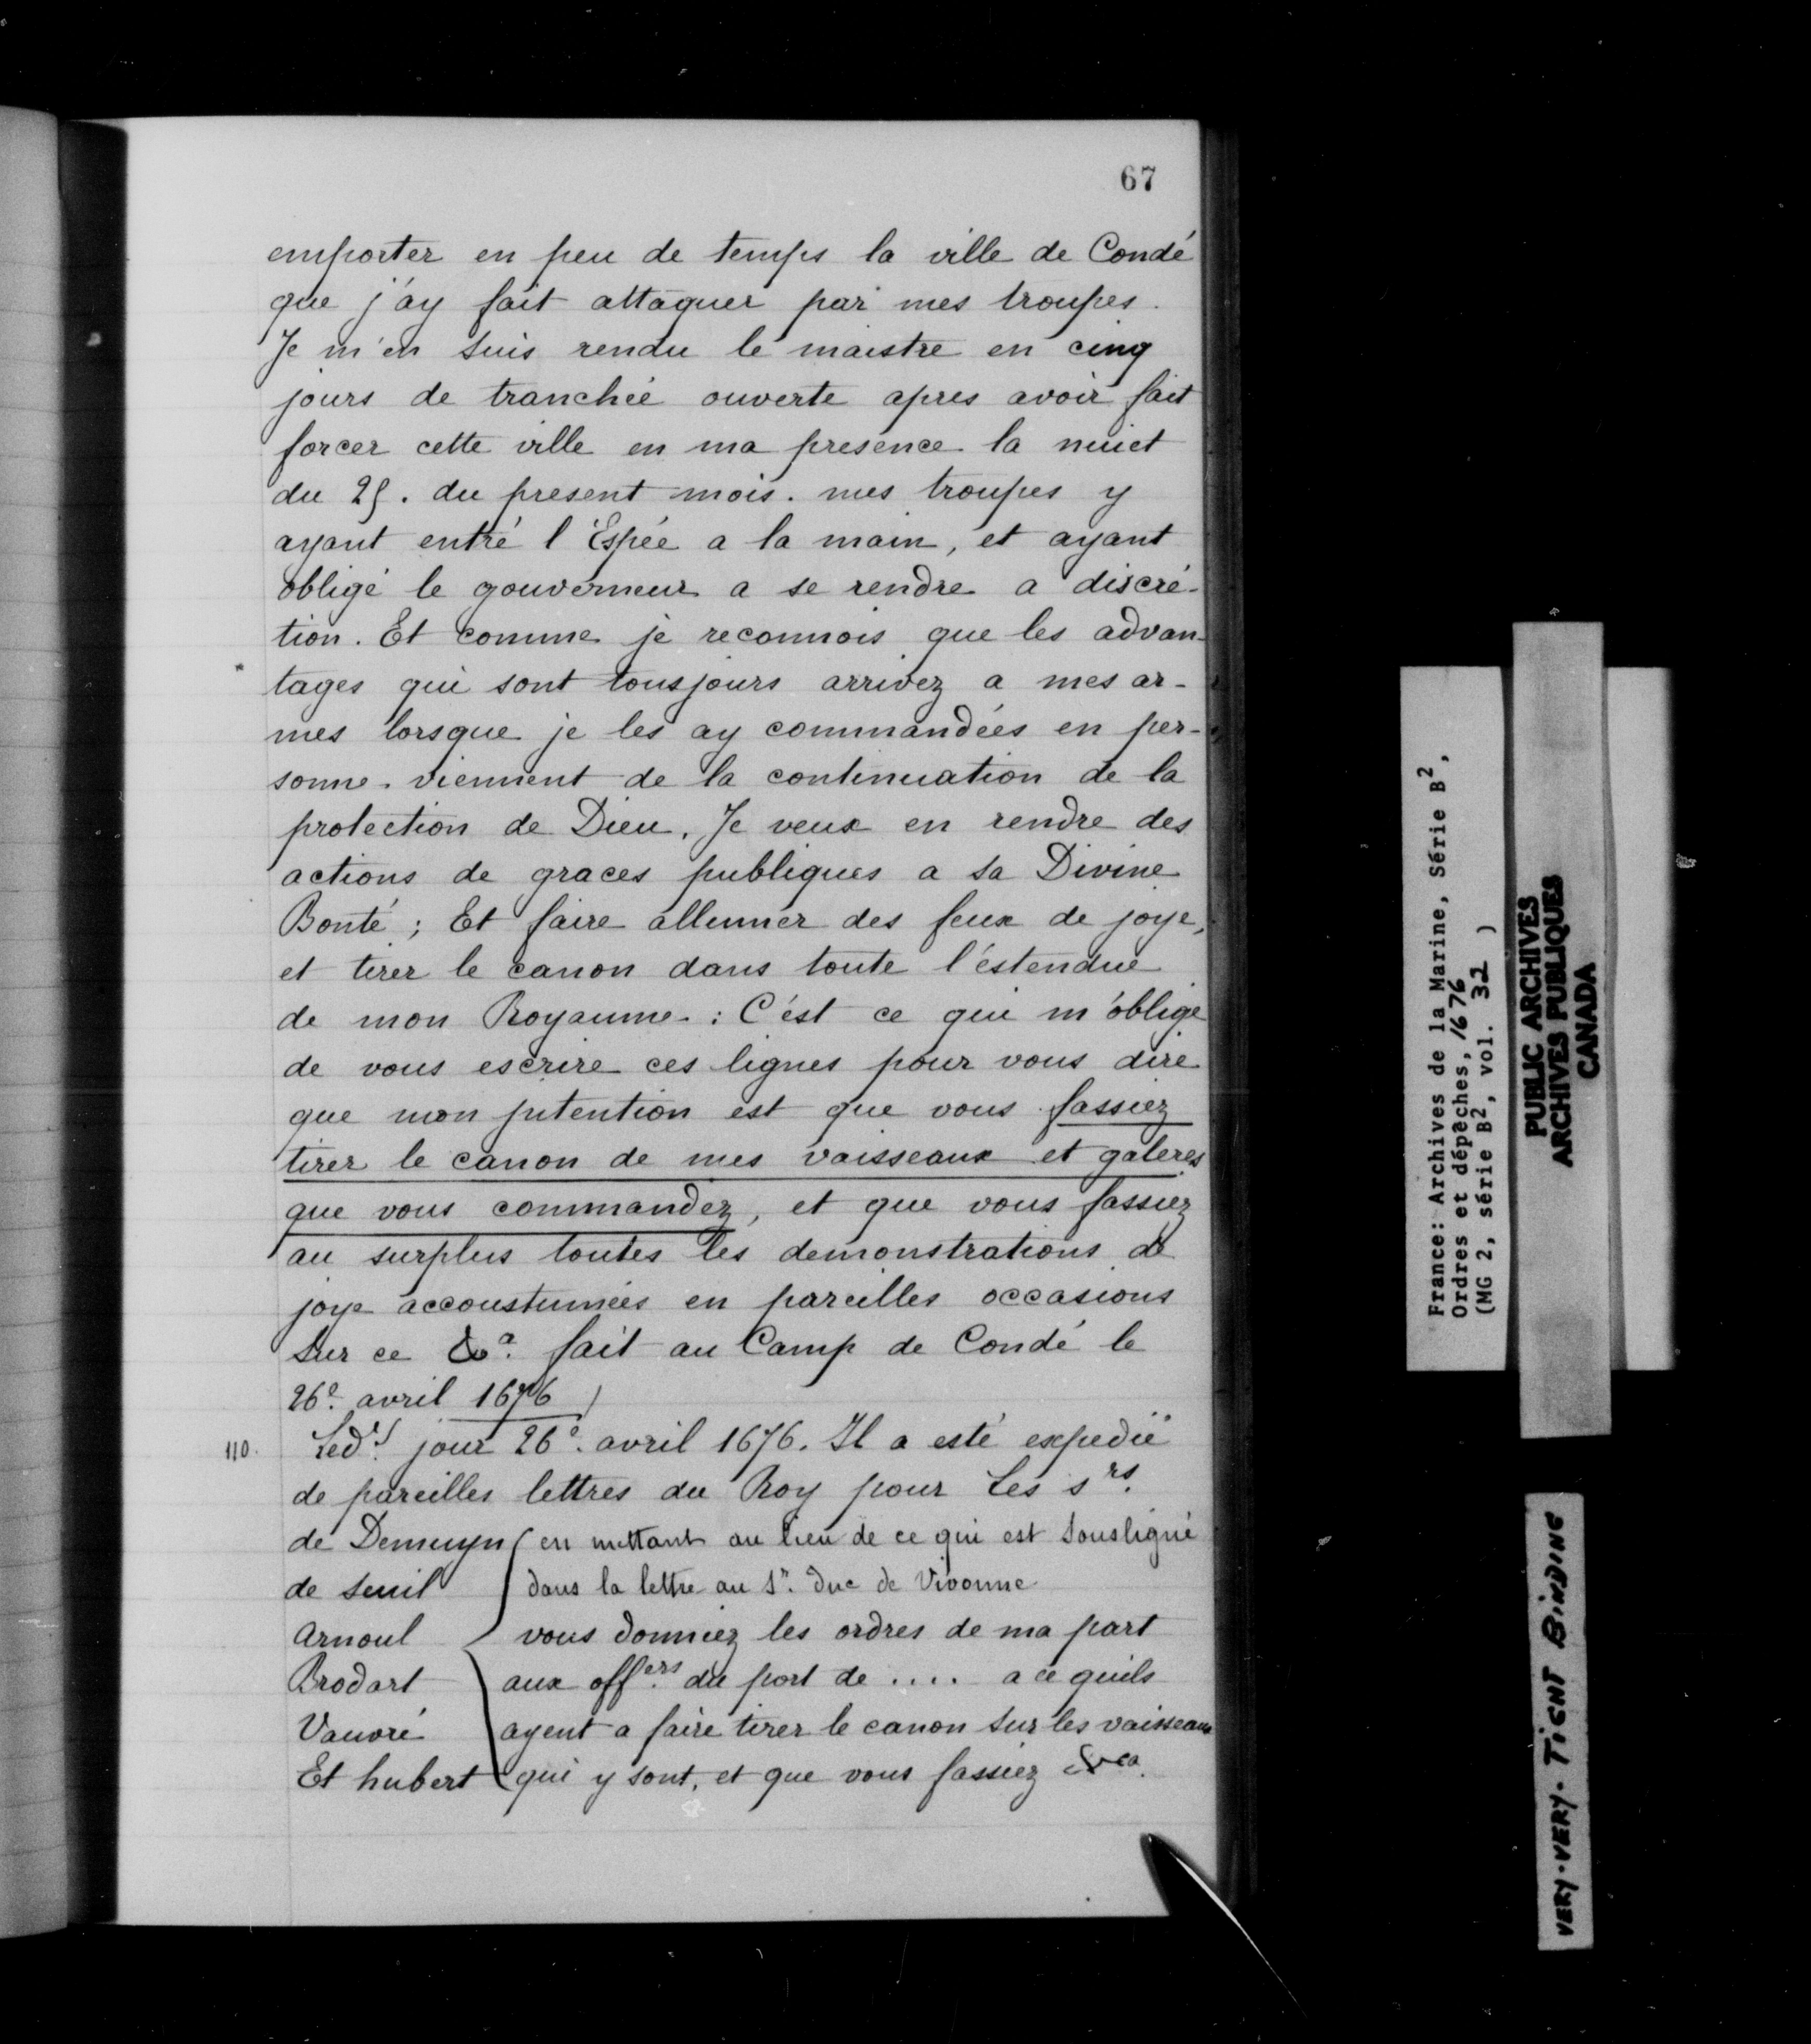 67
emporter en peu de temps la ville de Condé
que j'ay fait attaquer par mes troupes.
Je m'en suis rendu le maistre en cinq
jours de tranchée ouverte apres avoir fait
forcer cette ville en ma presence la nuict
du 25. du present mois. mes troupes y
ayant entré l'Espée a la main, et ayant
obligé le gouverneur a se rendre a discré-
tion. Et comme je reconnois que les advan-
tages qui sont tousjours arrivez a mes ar-
mes lorsque je les ay commandées en per-
sonne. viennent de la continuation de la
protection de Dieu. Je veux en rendre des
actions de graces publiques a sa Divine
Bonté ; Et faire allumer des feux de joye,
et tirer le canon dans toute l'éstendue
de mon Royaume : C'ést ce qui m'oblige
de vous escrire ces lignes pour vous dire
que mon jntention est que vous fassiez
tirer le canon de mes vaisseaux et galeres
que vous commandez, et que vous fassiez
au surplus toutes les demonstrations de
joye accoustumées en pareilles occasions
Sur ce &a. fait au Camp de Condé le
26e. avril 1676
110. Led.t jour 26e. avril 1676. Il a esté expedié
de pareilles lettres du Roy pour Les srs.
de Demuyn ( en mettant au lieu de ce qui est sousligné
de Seuil dans la lettre au Sr. Duc de Vivonne
Arnoul vous donniez les ordres de ma part
Brodart aux offers. du port de .... a ce quils
Vauvré ayent a faire tirer le canon sur les vaisseaux
Et hubert qui y sont, et que vous fassiez &ca.
France: Archives de la Marine, Série B2,
Ordres et dépêches, 1676
(MG 2, série B2, vol. 32 )
PUBLIC ARCHIVES
ARCHIVES PUBLIQUES
CANADA
VERY-VERY-TIGHT BINDING